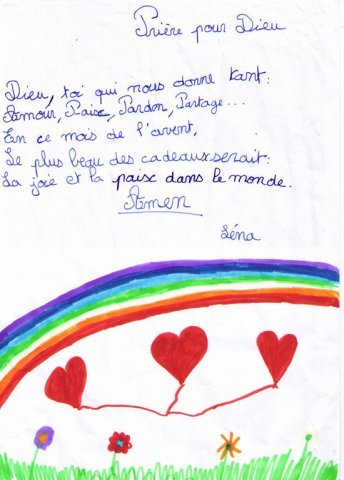 Prière pour Dieu
Dieu, toi qui nous donne tant:
Amour, Paix, Pardon, Partage...
En ce mois de l'avent,
Le plus beau des cadeaux serait:
La joie et la paix dans le monde.
Amen
Léna